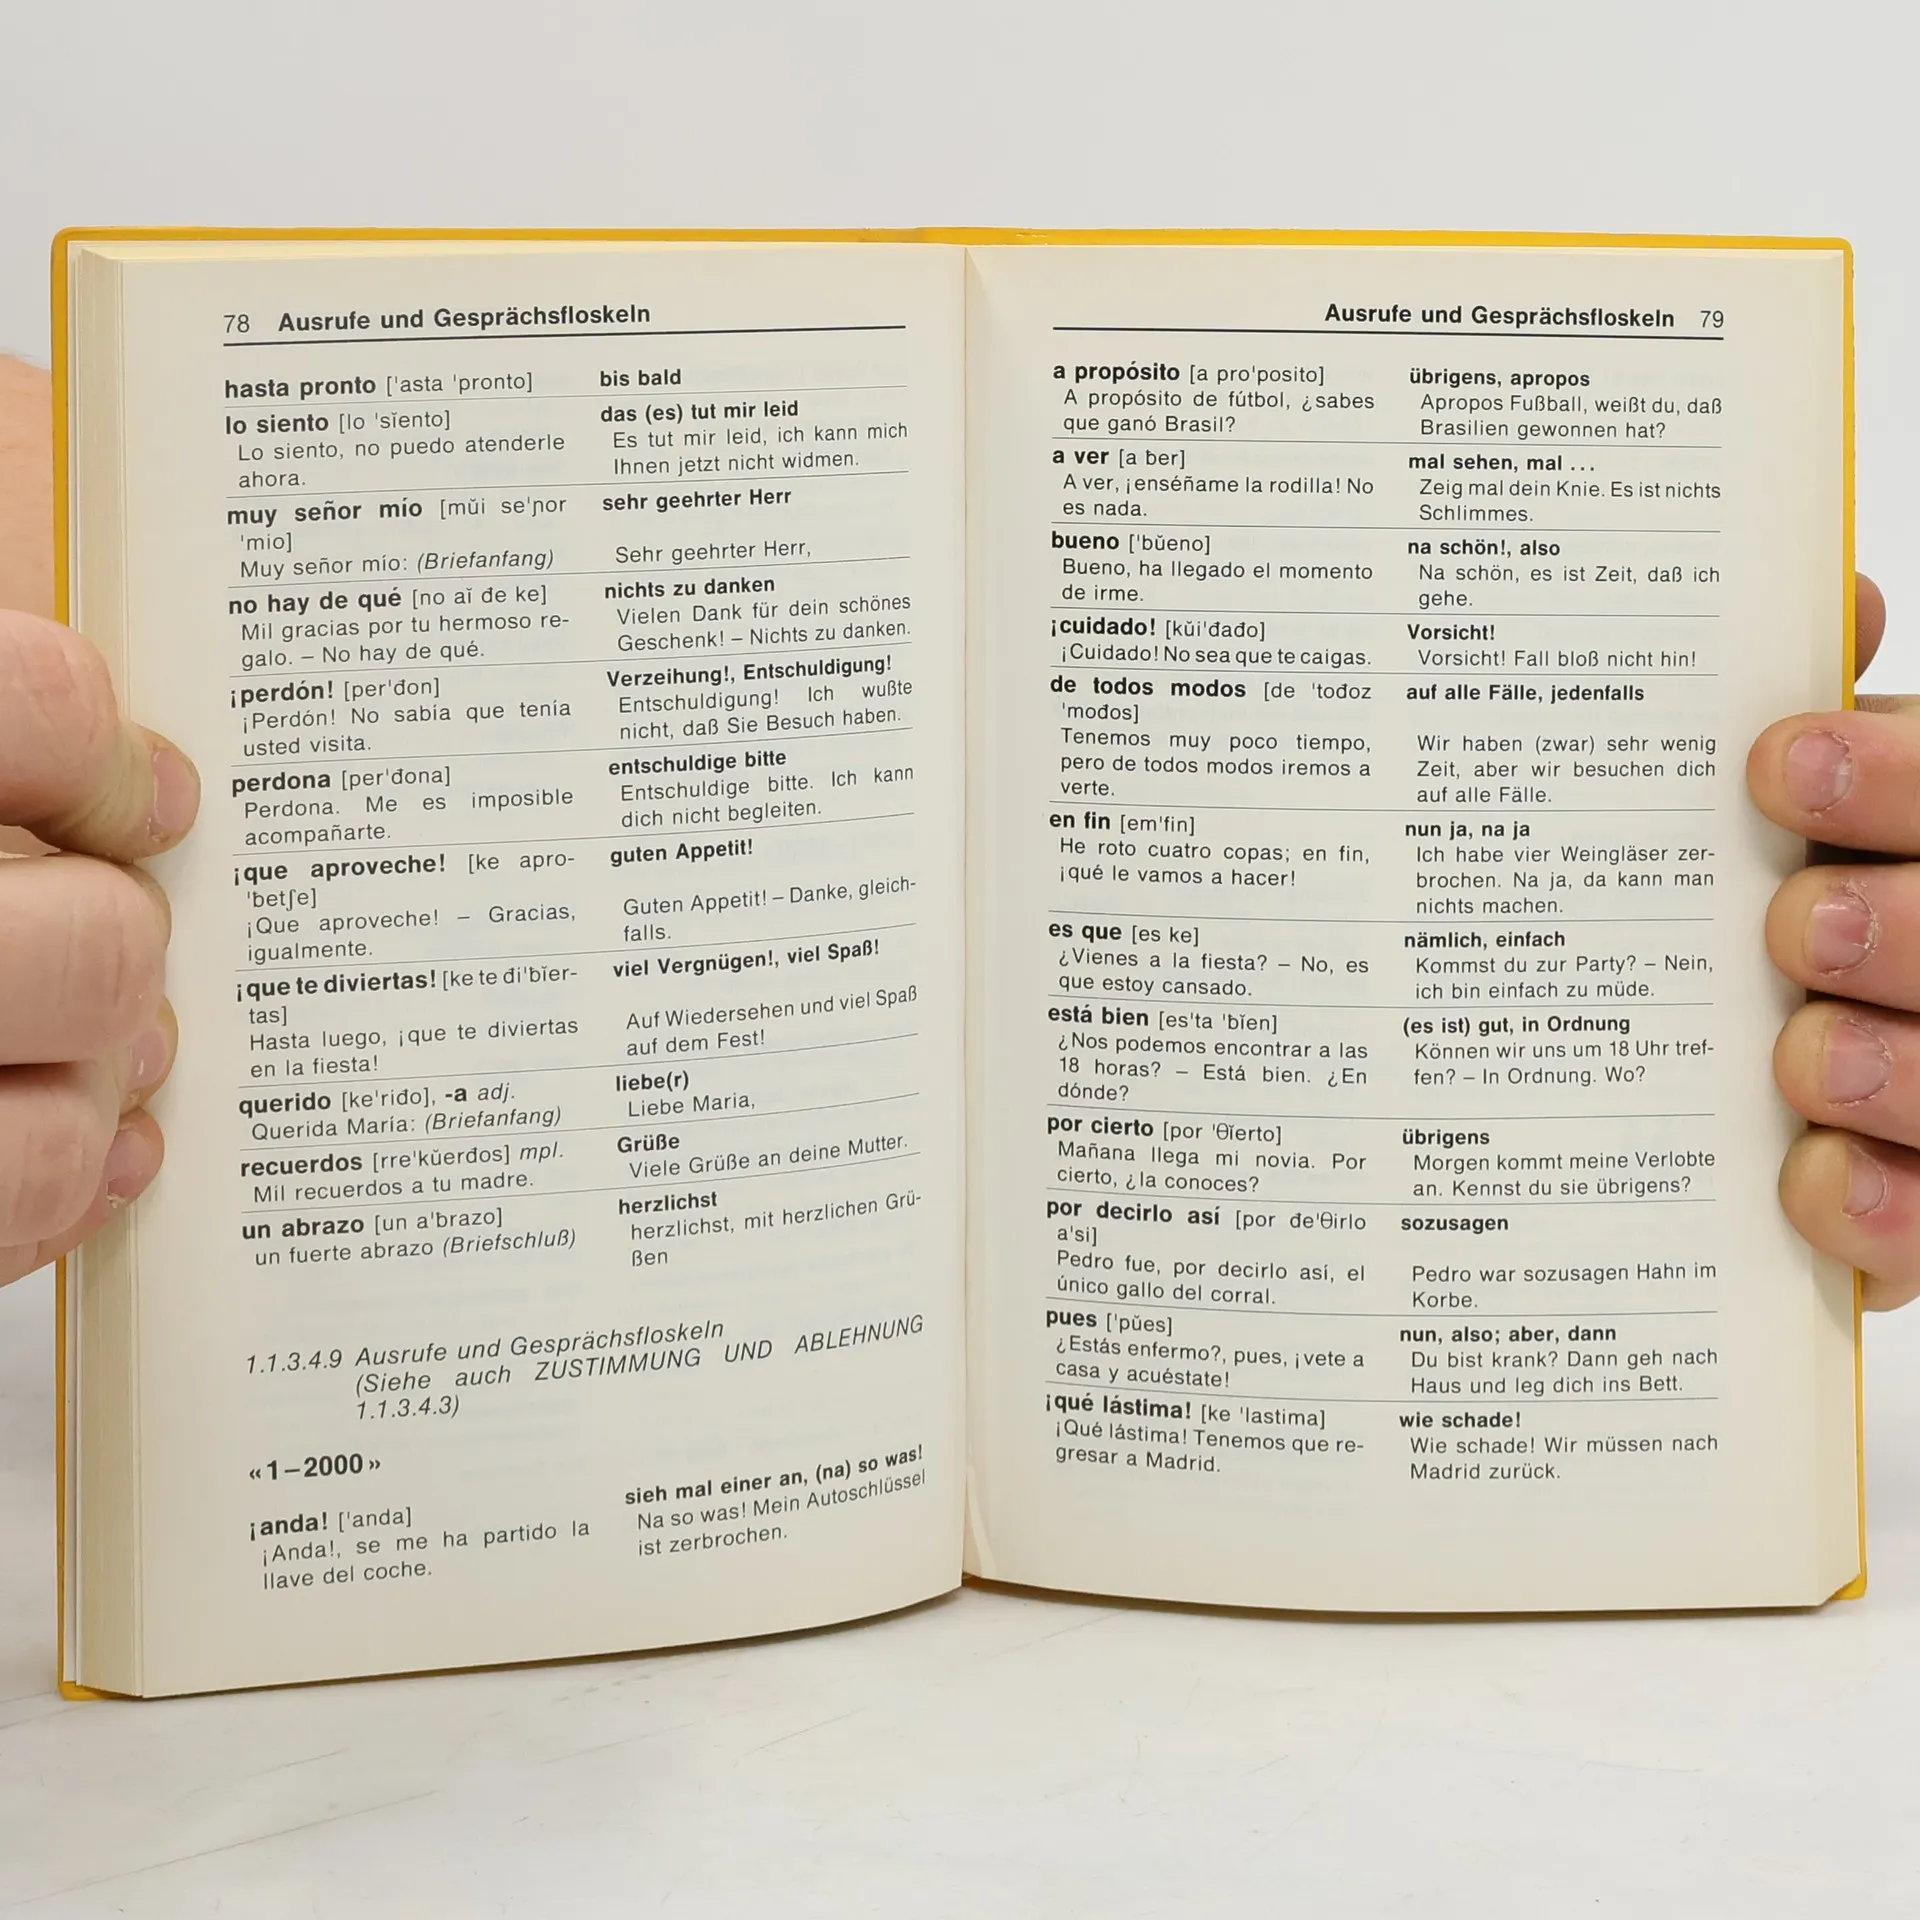 78 Ausrufe und Gesprächsfloskeln
hasta pronto ['asta 'pronto]
bis bald
lo siento [lo 'sĭento]
Lo siento, no puedo atenderle
ahora.
das (es) tut mir leid
Es tut mir leid, ich kann mich
Ihnen jetzt nicht widmen.
muy señor mío [mŭi se'ɲor
'mio]
Muy señor mío: (Briefanfang)
sehr geehrter Herr
Sehr geehrter Herr,
no hay de qué [no aĭ đe ke]
Mil gracias por tu hermoso re-
galo. – No hay de qué.
nichts zu danken
Vielen Dank für dein schönes
Geschenk! – Nichts zu danken.
¡perdón! [per'đon]
¡Perdón! No sabía que tenía
usted visita.
Verzeihung!, Entschuldigung!
Entschuldigung! Ich wußte
nicht, daß Sie Besuch haben.
perdona [per'đona]
Perdona. Me es imposible
acompañarte.
entschuldige bitte
Entschuldige bitte. Ich kann
dich nicht begleiten.
¡que aproveche! [ke apro-
'ƀetʃe]
¡Que aproveche! – Gracias,
igualmente.
guten Appetit!
Guten Appetit! – Danke, gleich-
falls.
¡que te diviertas! [ke te đi'ƀĭer-
tas]
Hasta luego, ¡que te diviertas
en la fiesta!
viel Vergnügen!, viel Spaß!
Auf Wiedersehen und viel Spaß
auf dem Fest!
querido [ke'riđo], -a adj.
Querida María: (Briefanfang)
liebe(r)
Liebe Maria,
recuerdos [rre'kŭerđos] mpl.
Mil recuerdos a tu madre.
Grüße
Viele Grüße an deine Mutter.
un abrazo [un a'ƀrazo]
un fuerte abrazo (Briefschluß)
herzlichst
herzlichst, mit herzlichen Grü-
ßen
1.1.3.4.9 Ausrufe und Gesprächsfloskeln
(Siehe auch ZUSTIMMUNG UND ABLEHNUNG
1.1.3.4.3)
«1–2000»
¡anda! ['anda]
¡Anda!, se me ha partido la
llave del coche.
sieh mal einer an, (na) so was!
Na so was! Mein Autoschlüssel
ist zerbrochen.
Ausrufe und Gesprächsfloskeln 79
a propósito [a pro'posito]
A propósito de fútbol, ¿sabes
que ganó Brasil?
übrigens, apropos
Apropos Fußball, weißt du, daß
Brasilien gewonnen hat?
a ver [a ber]
A ver, ¡enséñame la rodilla! No
es nada.
mal sehen, mal ...
Zeig mal dein Knie. Es ist nichts
Schlimmes.
bueno ['bŭeno]
Bueno, ha llegado el momento
de irme.
na schön!, also
Na schön, es ist Zeit, daß ich
gehe.
¡cuidado! [kŭi'đađo]
¡Cuidado! No sea que te caigas.
Vorsicht!
Vorsicht! Fall bloß nicht hin!
de todos modos [de 'tođoz
'mođos]
Tenemos muy poco tiempo,
pero de todos modos iremos a
verte.
auf alle Fälle, jedenfalls
Wir haben (zwar) sehr wenig
Zeit, aber wir besuchen dich
auf alle Fälle.
en fin [em'fin]
He roto cuatro copas; en fin,
¡qué le vamos a hacer!
nun ja, na ja
Ich habe vier Weingläser zer-
brochen. Na ja, da kann man
nichts machen.
es que [es ke]
¿Vienes a la fiesta? – No, es
que estoy cansado.
nämlich, einfach
Kommst du zur Party? – Nein,
ich bin einfach zu müde.
está bien [es'ta 'ƀĭen]
¿Nos podemos encontrar a las
18 horas? – Está bien. ¿En
dónde?
(es ist) gut, in Ordnung
Können wir uns um 18 Uhr tref-
fen? – In Ordnung. Wo?
por cierto [por 'θĭerto]
Mañana llega mi novia. Por
cierto, ¿la conoces?
übrigens
Morgen kommt meine Verlobte
an. Kennst du sie übrigens?
por decirlo así [por đe'θirlo
a'si]
Pedro fue, por decirlo así, el
único gallo del corral.
sozusagen
Pedro war sozusagen Hahn im
Korbe.
pues ['pŭes]
¿Estás enfermo?, pues, ¡vete a
casa y acuéstate!
nun, also; aber, dann
Du bist krank? Dann geh nach
Haus und leg dich ins Bett.
¡qué lástima! [ke 'lastima]
¡Qué lástima! Tenemos que re-
gresar a Madrid.
wie schade!
Wie schade! Wir müssen nach
Madrid zurück.